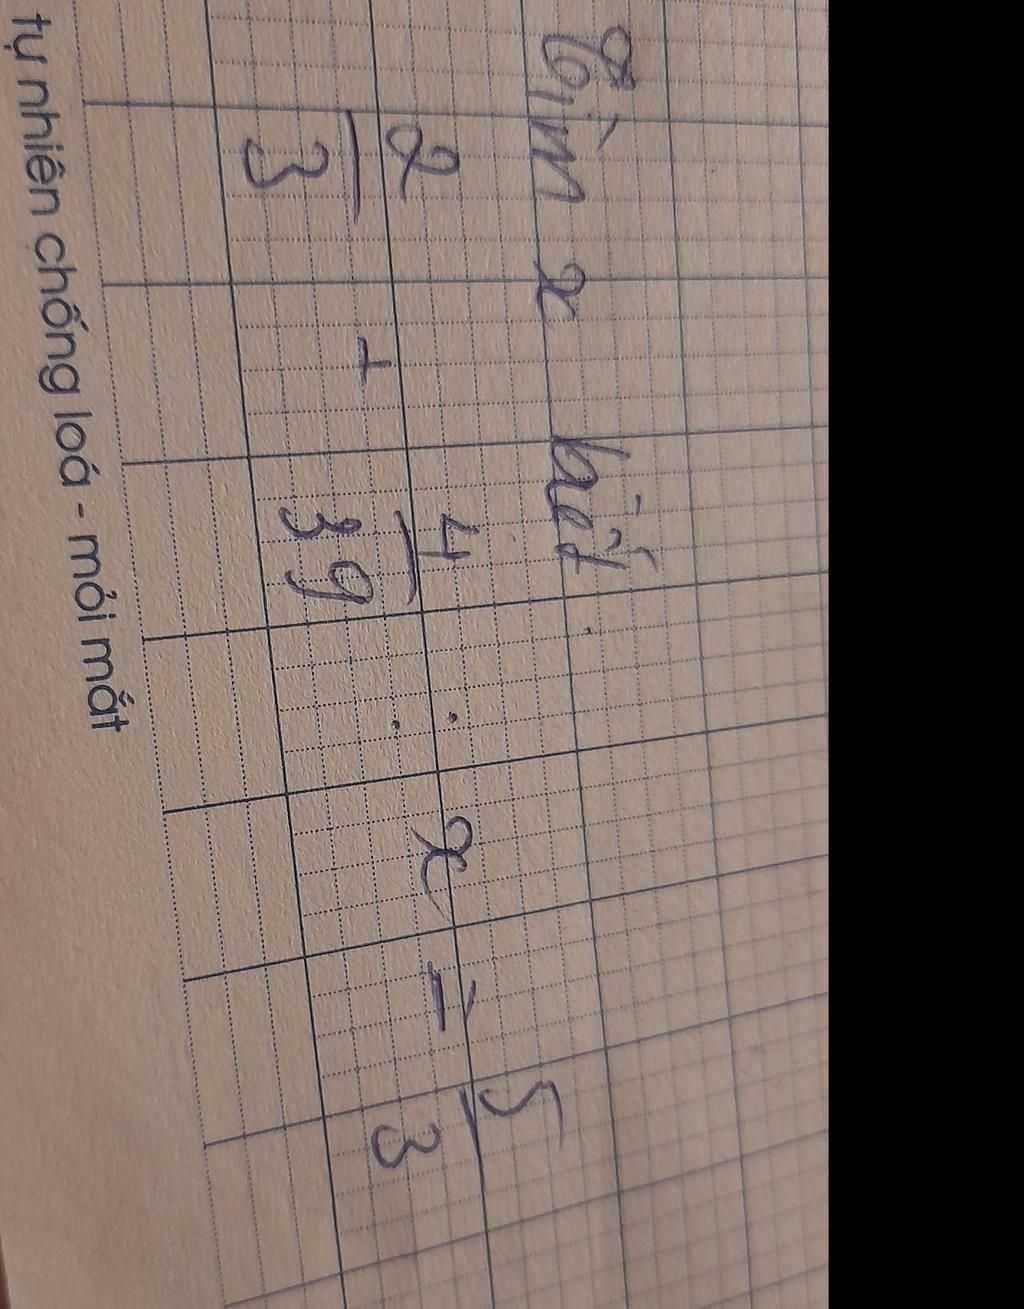 Tìm x biết
2/3 + 4/39 : x = 5/3
tự nhiên chống loá - mỏi mắt